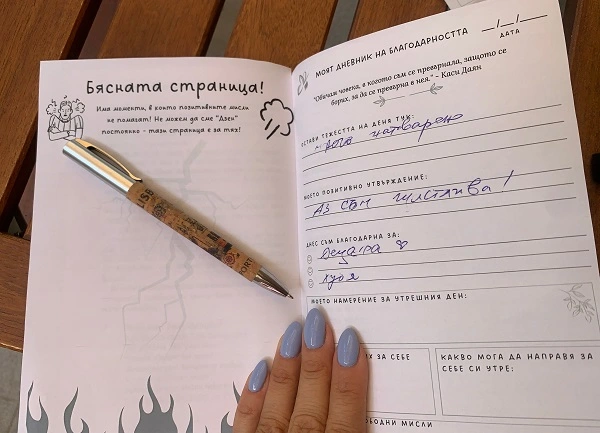 Бясната страница!
Има моменти, в които позитивните мисли
не помагат! Не можем да сме "Дзен"
постоянно - тази страница е за тях!
МОЯТ ДНЕВНИК НА БЛАГОДАРНОСТТА
__/__/__
ДАТА
"Обичам човека, в когото съм се превърнала, защото се
борих, за да се превърна в нея." - Каси Даян
ОСТАВИ ТЕЖЕСТТА НА ДЕНЯ ТУК:
натварено
МОЕТО ПОЗИТИВНО УТВЪРЖДЕНИЕ:
Аз съм щастлива!
ДНЕС СЪМ БЛАГОДАРНА ЗА:
Децата
МОЕТО НАМЕРЕНИЕ ЗА УТРЕШНИЯ ДЕН:
ЗА СЕБЕ
КАКВО МОГА ДА НАПРАВЯ ЗА
СЕБЕ СИ УТРЕ:
МИСЛИ